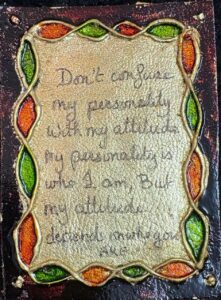 Don't confuse
my personality
with my attitude
my personality is
who I am, But
my attitude
depends on who you
are